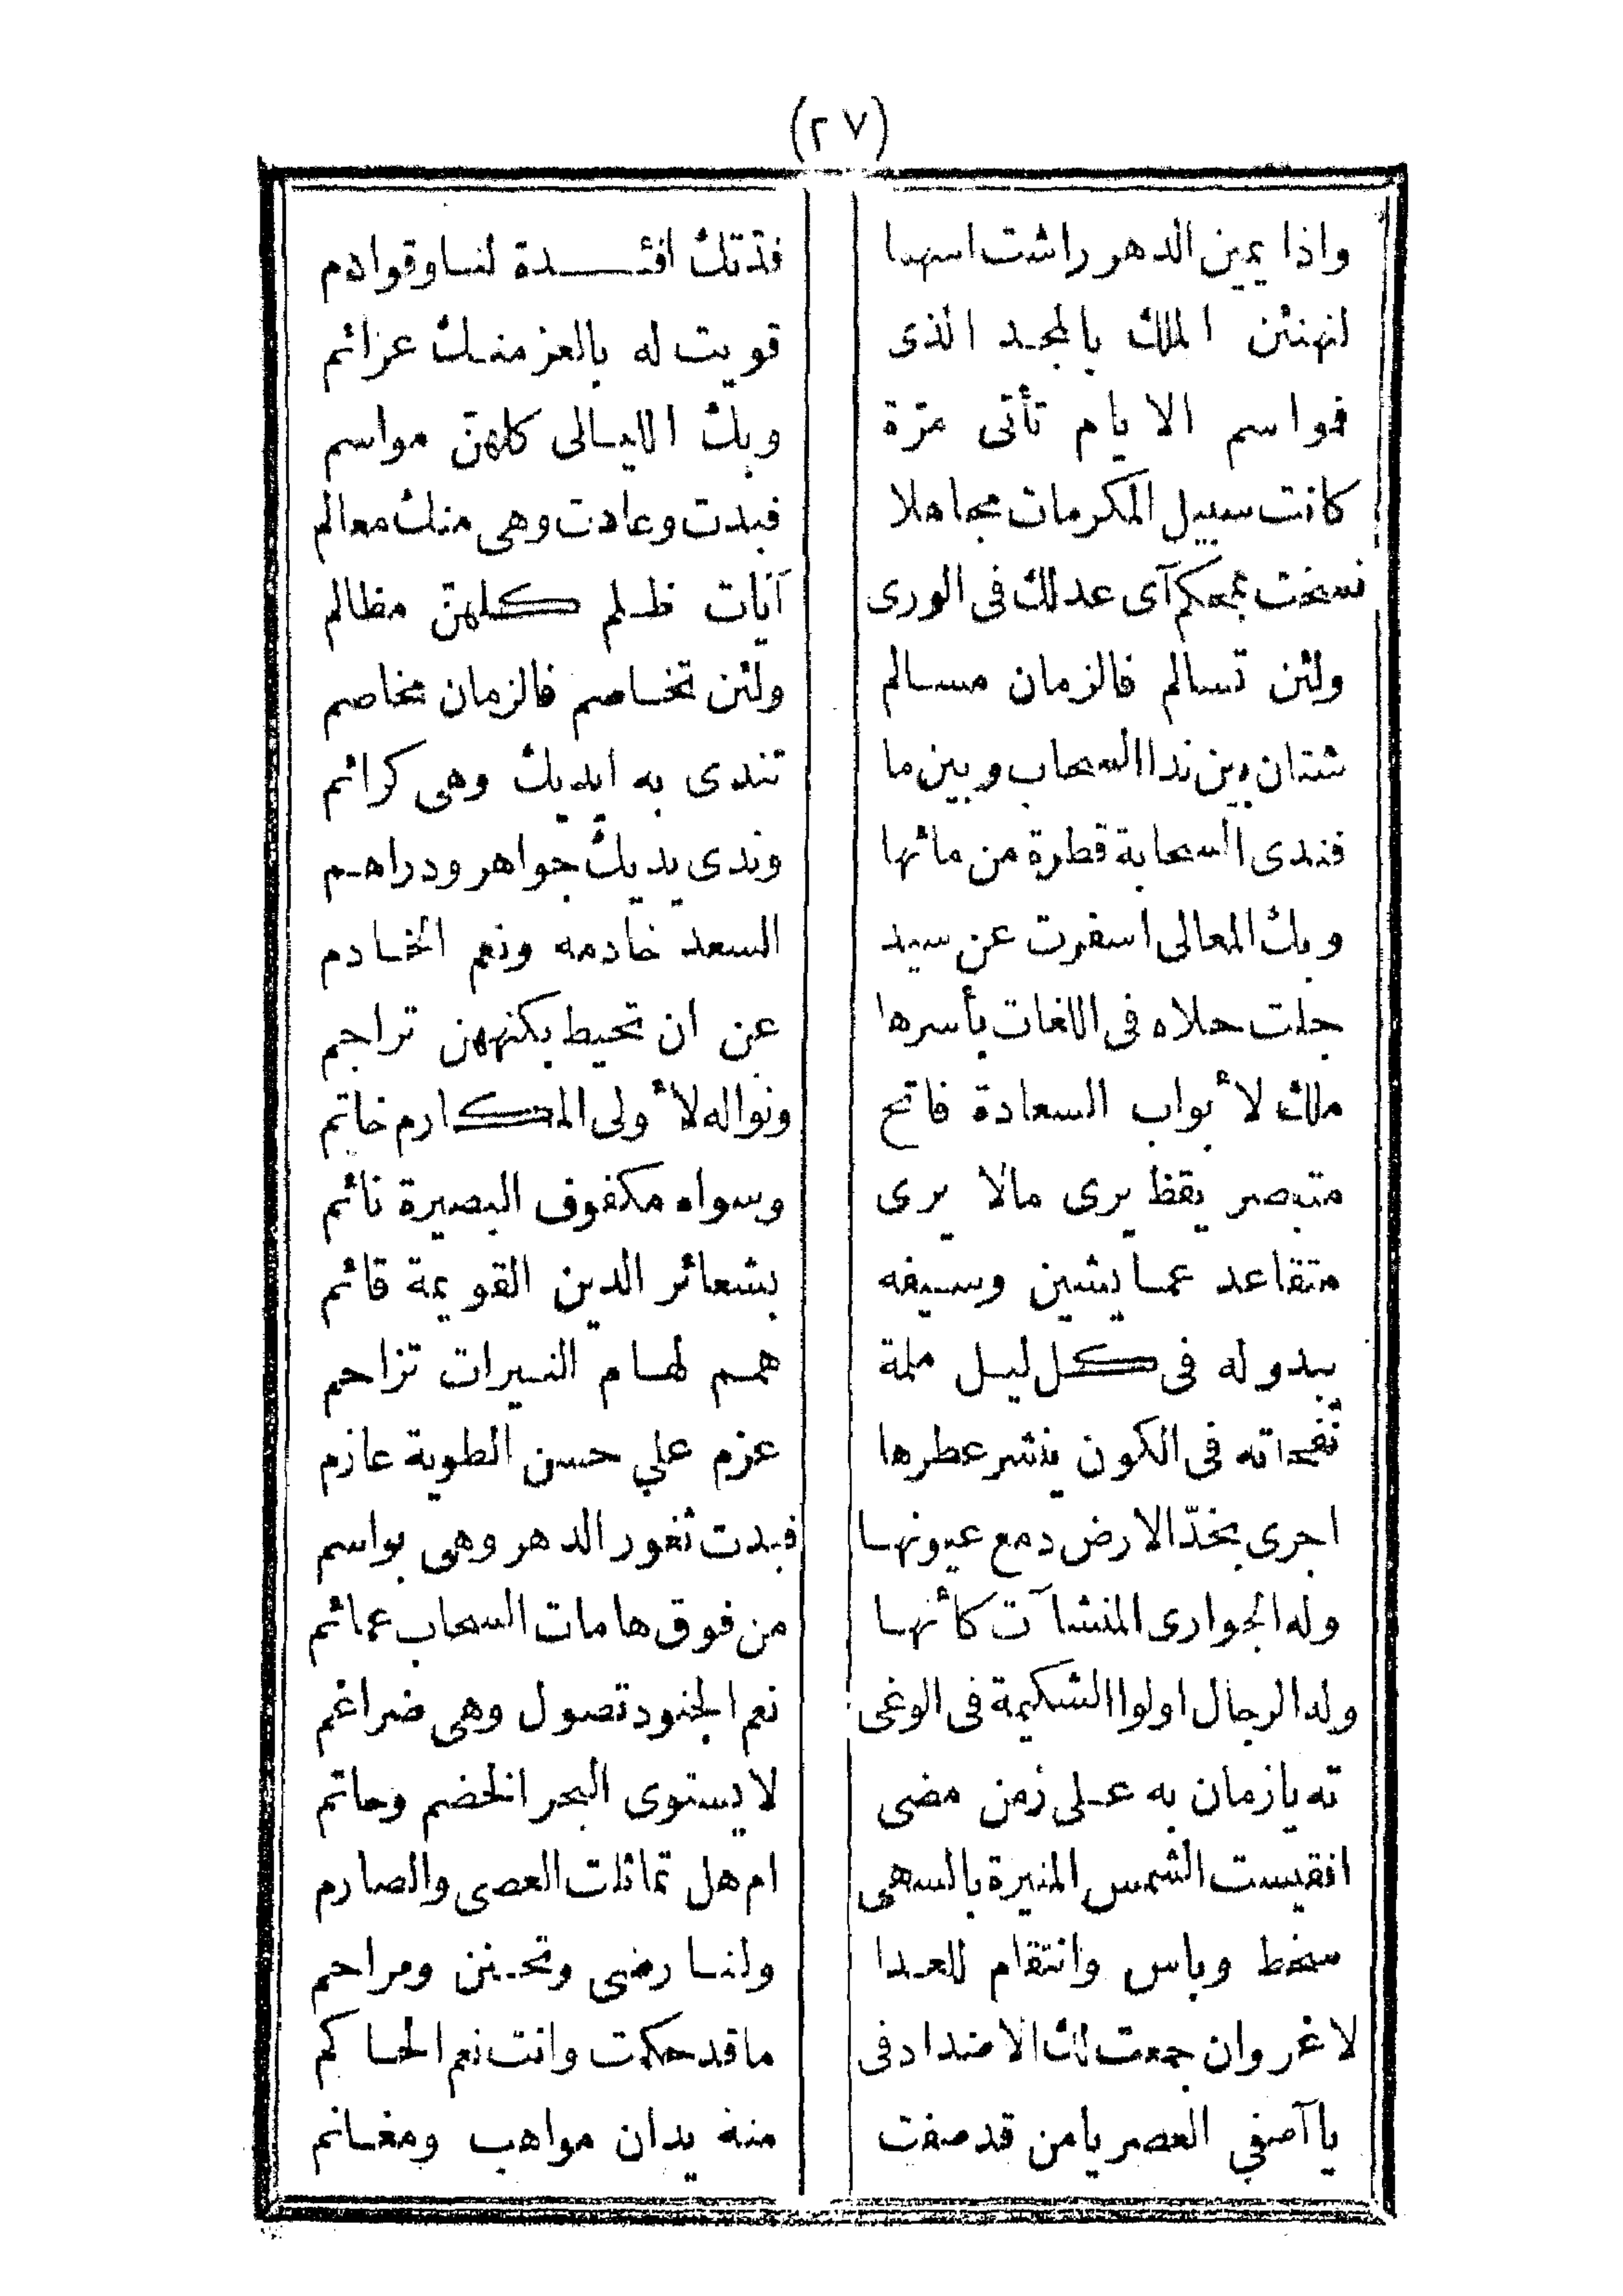 (٢٧)
واذا يمين الدهر راشت اسهما فدتك افئدة لنا وقوادم
لنهنئن الملك بالمجد الذى قويت له بالعز منك عزائم
فمواسم الايام تأتى مرّة وبك الليالى كلهنّ مواسم
كانت سبيل المكرمات مجاهلا فبدت وعادت وهى منك معالم
نسخت بمحكم آى عدلك فى الورى آيات ظلم كلهنّ مظالم
ولئن تسالم فالزمان مسالم ولئن تخاصم فالزمان مخاصم
شتان بين ندا السحاب وبين ما تندى به ايديك وهى كرائم
فندى السحابة قطرة من مائها وندى يديك جواهر ودراهم
وبك المعالى اسفرت عن سيد السعد خادمه ونعم الخادم
جلت حلاه فى اللغات بأسرها عن ان تحيط بكنههن تراجم
ملك لأبواب السعادة فاتح ونواله لأولى المكارم خاتم
متبصر يقظ يرى مالا يرى وسواه مكفوف البصيرة نائم
متقاعد عما يشين وسيفه بشعائر الدين القويمة قائم
يبدو له فى كل ليل ملمة همم لهام النيرات تزاحم
نفحاته فى الكون ينشر عطرها عزم علي حسن الطوية عازم
اجرى بخدّ الارض دمع عيونها فبدت ثغور الدهر وهى بواسم
وله الجوارى المنشآت كأنها من فوق هامات السحاب عمائم
وله الرجال اولوا الشكيمة فى الوغى نعم الجنود تصول وهى ضراغم
ته يازمان به على زمن مضى لا يستوى البحر الخضم وحاتم
افقيست الشمس المنيرة بالسهى ام هل تماثلت العصى والصارم
سخط وباس وانتقام للعدا ولنا رضى وتحنن ومراحم
لا غروان جمعت لك الاضداد فى ما قد حكمت وانت نعم الحاكم
يا آصفي العصر يا من قد صفت منه يدان مواهب ومغانم